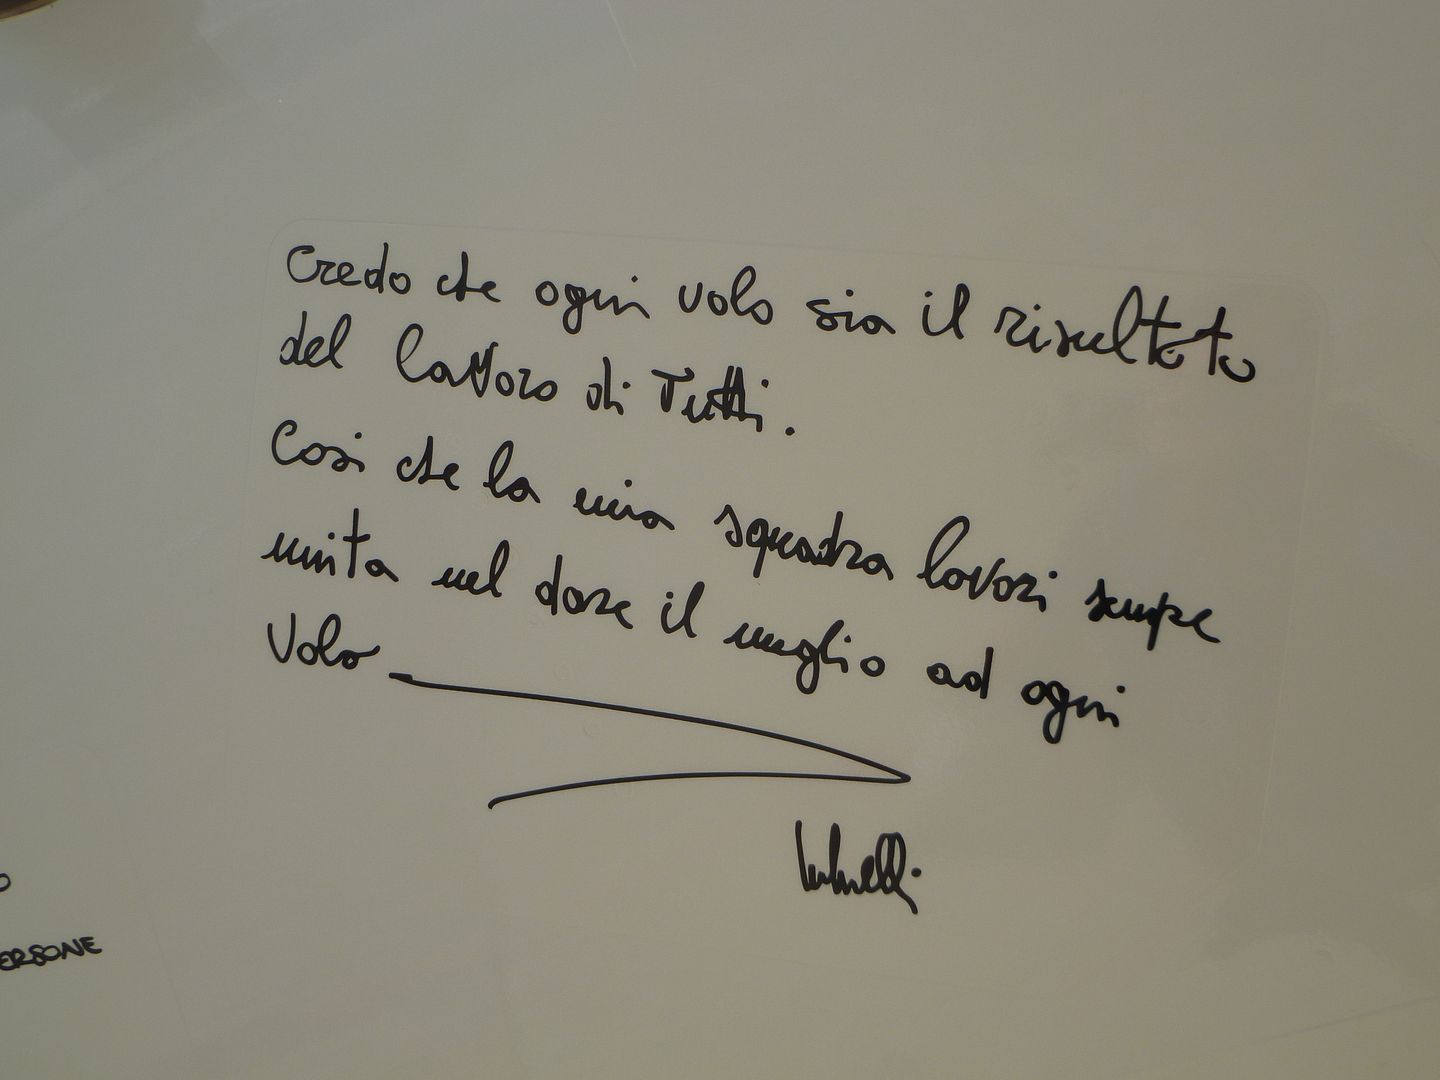 Credo che ogni volo sia il risultato
del lavoro di Tutti.
Così che la mia squadra lavori sempre
unita nel dare il meglio ad ogni
Volo
ERSONE